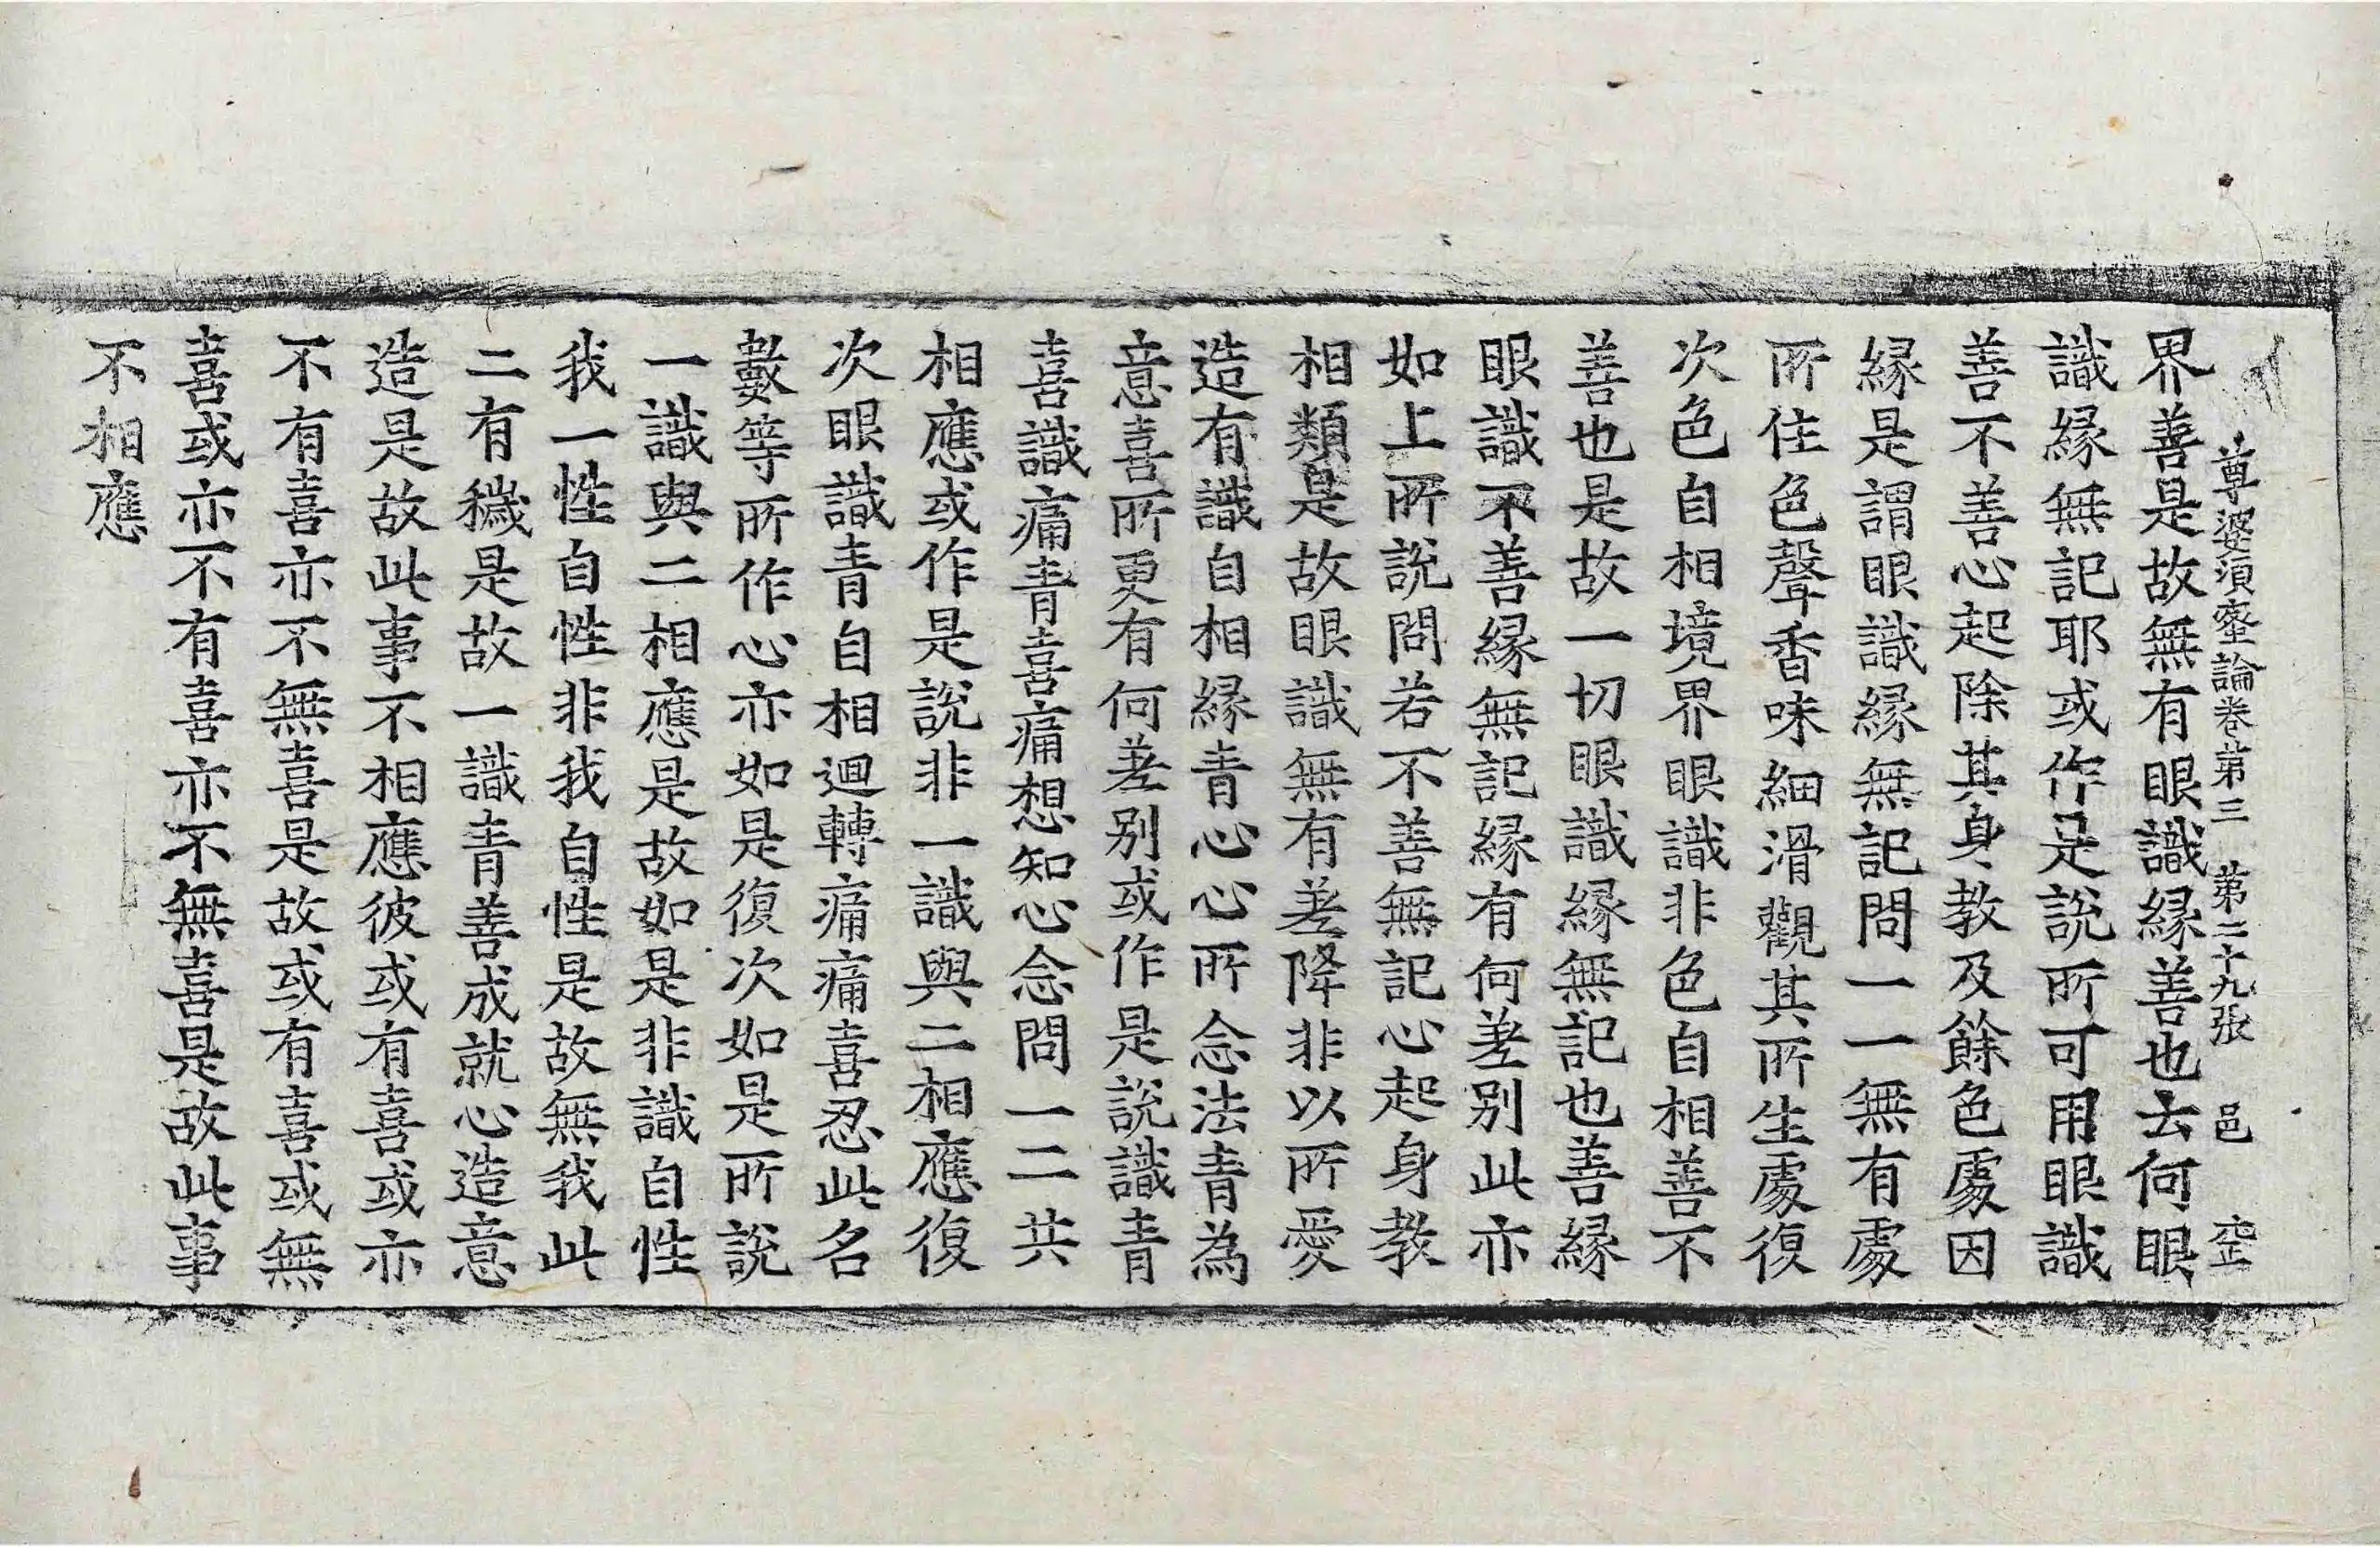 尊婆須蜜論卷第三 第二十九張 邑
界善是故無有眼識緣善也云何眼
識緣無記耶或作是說所可用眼識
善不善心起除其身教及餘色處因
緣是謂眼識緣無記問一一無有處
所住色聲香味細滑觀其所生處復
次色自相境界眼識非色自相善不
善也是故一切眼識緣無記也善緣
眼識不善緣無記緣有何差別此亦
如上所說問若不善無記心起身教
相類是故眼識無有差降非以所愛
造有識自相緣青心心所念法青為
意喜所更有何差別或作是說識青
喜識痛青喜痛想知心念問一二共
相應或作是說非一識與二相應復
次眼識青自相迴轉痛痛喜忍此名
數等所作心亦如是復次如是所說
一識與二相應是故如是非識自性
我一性自性非我自性是故無我此
二有穢是故一識青善成就心造意
造是故此事不相應彼或有喜或亦
不有喜亦不無喜是故或有喜或無
喜或亦不有喜亦不無喜是故此事
不相應